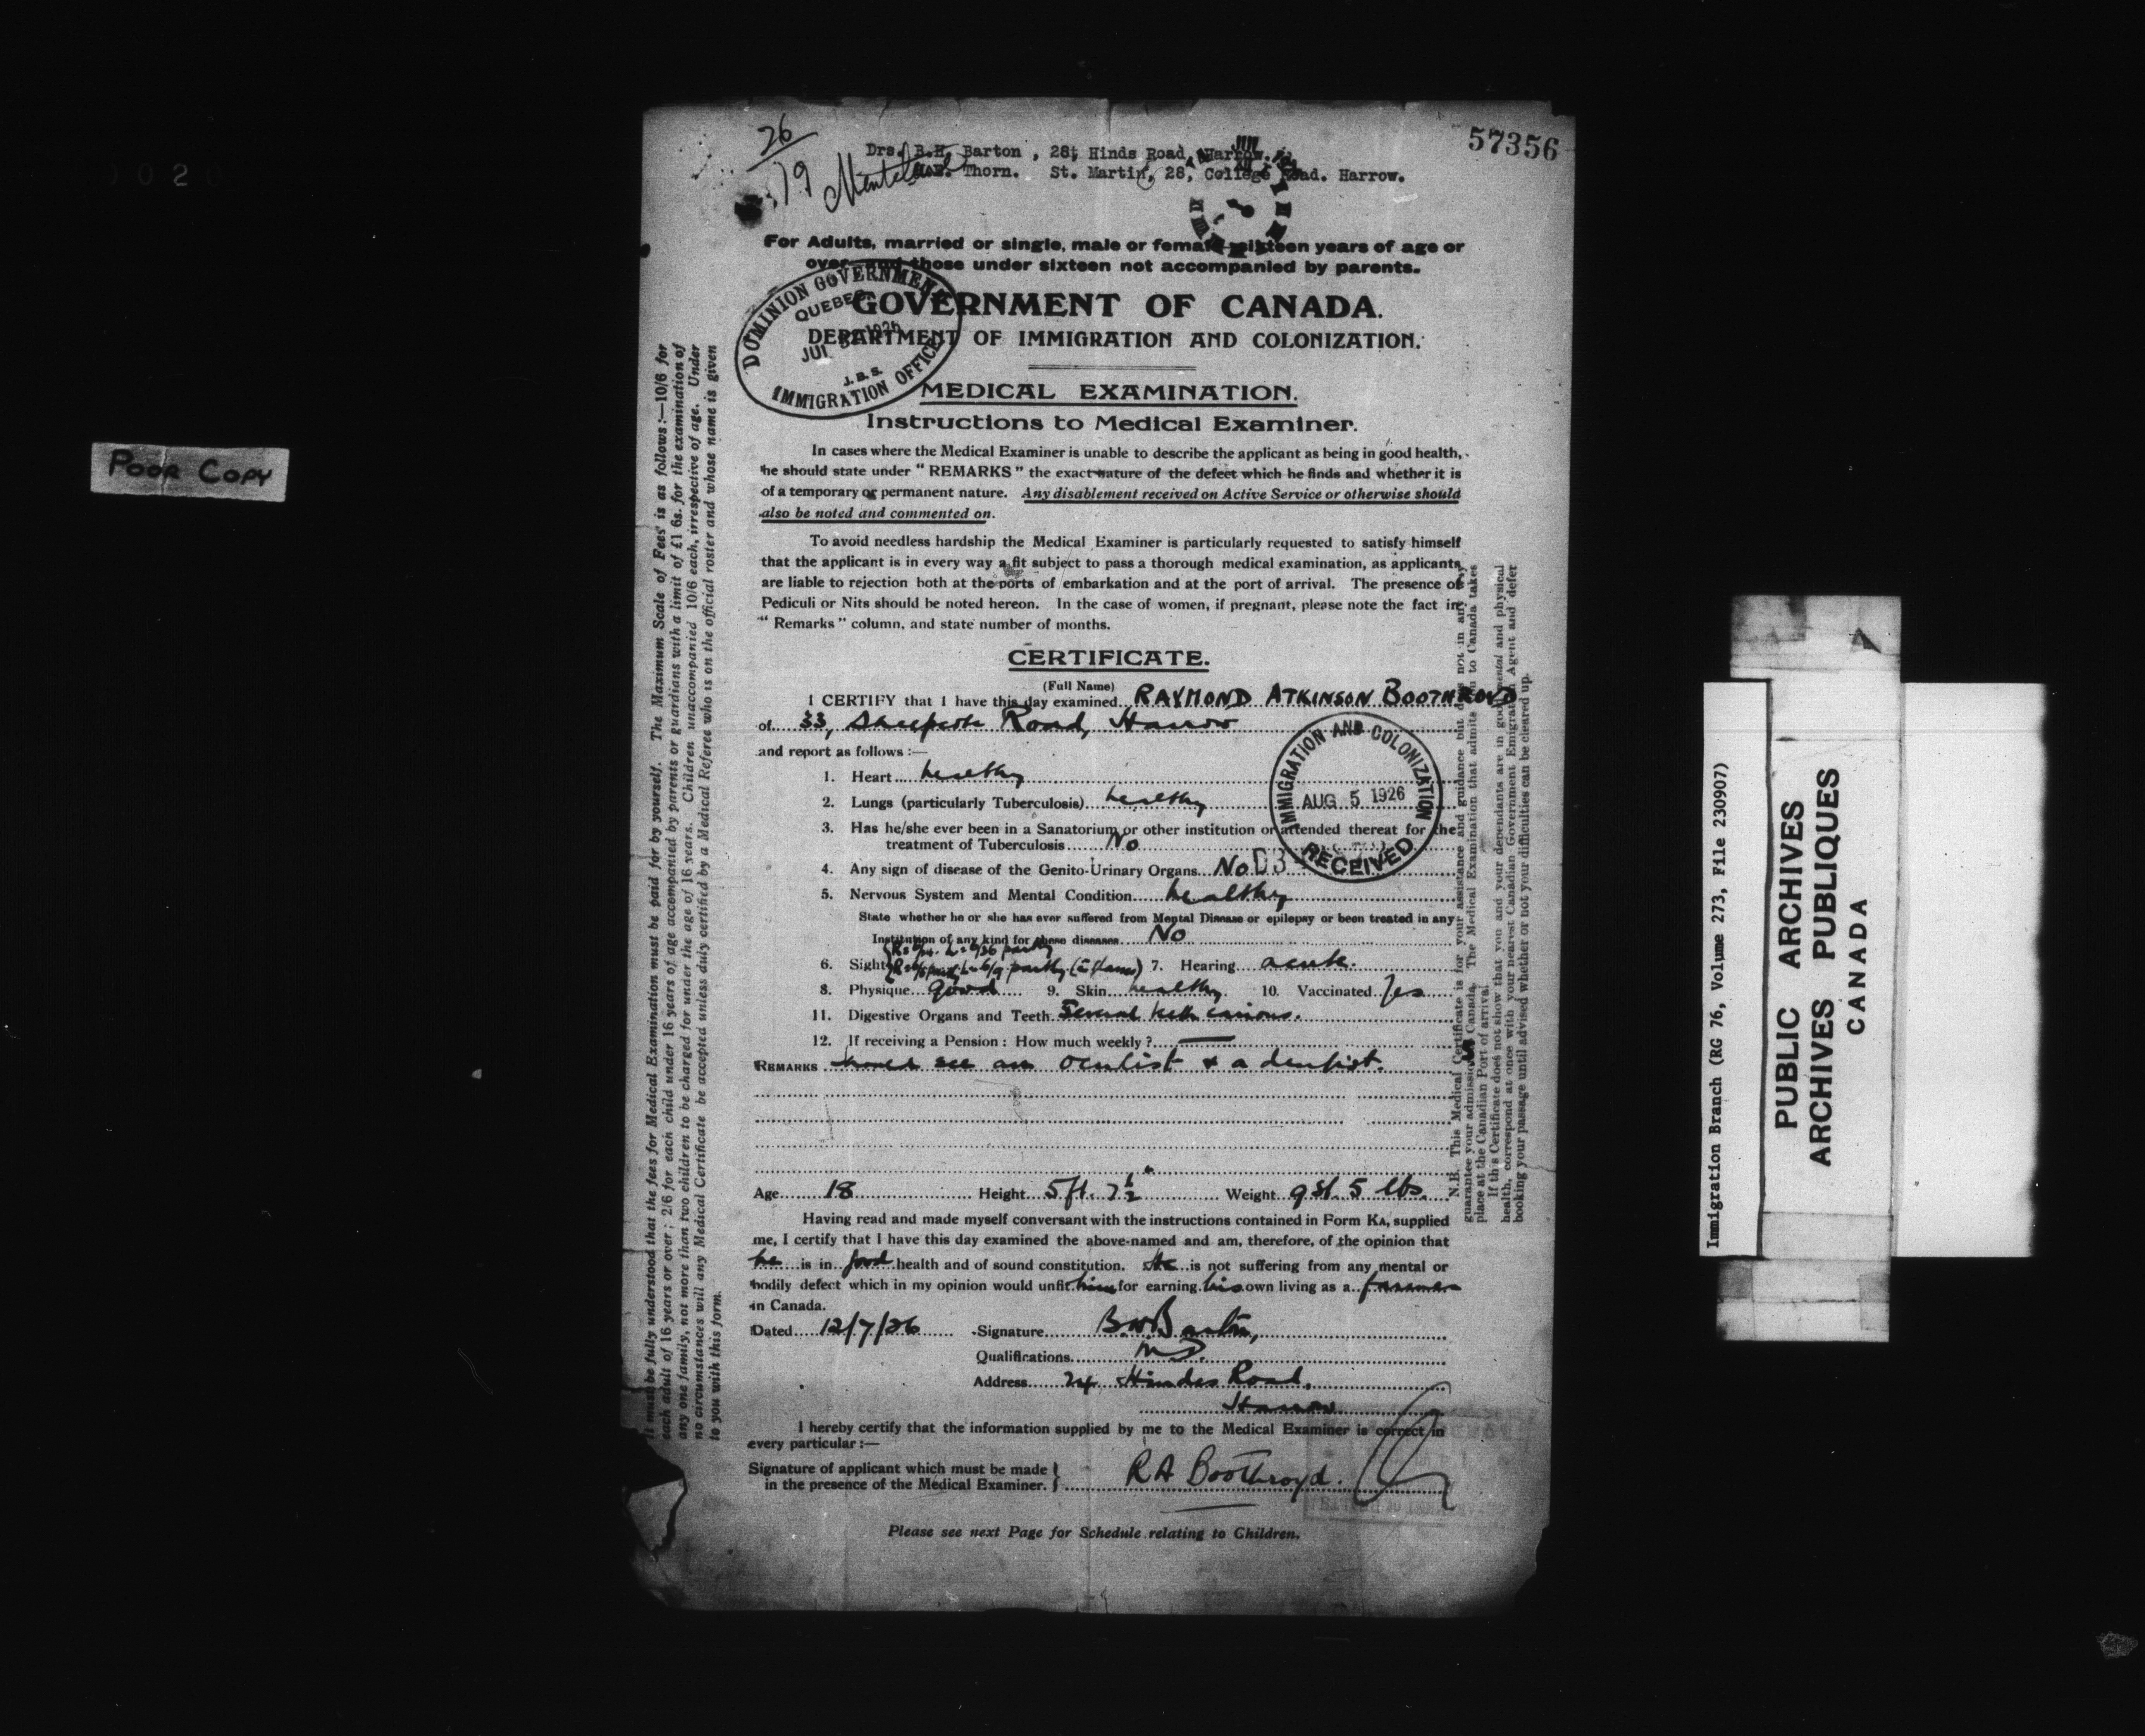 57356
26
19
Drs. B.H. Barton , 28, Hinds Road, Harrow.
Thorn. St. Martin, 28, College Road. Harrow.
For Adults, married or single, male or female sixteen years of age or
over, and those under sixteen not accompanied by parents.
DOMINION GOVERNMENT
QUEBEC
1926
J.B.S.
IMMIGRATION OFFICE
GOVERNMENT OF CANADA.
DEPARTMENT OF IMMIGRATION AND COLONIZATION.
MEDICAL EXAMINATION.
Instructions to Medical Examiner.
In cases where the Medical Examiner is unable to describe the applicant as being in good health,
he should state under "REMARKS" the exact nature of the defect which he finds and whether it is
of a temporary or permanent nature. Any disablement received on Active Service or otherwise should
also be noted and commented on.
To avoid needless hardship the Medical Examiner is particularly requested to satisfy himself
that the applicant is in every way a fit subject to pass a thorough medical examination, as applicants
are liable to rejection both at the ports of embarkation and at the port of arrival. The presence of
Pediculi or Nits should be noted hereon. In the case of women, if pregnant, please note the fact in
"Remarks" column, and state number of months.
CERTIFICATE.
(Full Name)
I CERTIFY that I have this day examined RAYMOND ATKINSON BOOTHROYD
of 33, Sheepcote Road, Harrow
and report as follows :—
1. Heart healthy
2. Lungs (particularly Tuberculosis) healthy
3. Has he/she ever been in a Sanatorium or other institution or attended thereat for the
treatment of Tuberculosis No
4. Any sign of disease of the Genito-Urinary Organs No D3
5. Nervous System and Mental Condition healthy
State whether he or she has ever suffered from Mental Disease or epilepsy or been treated in any
Institution of any kind for these diseases No
6. Sight 7. Hearing acute.
8. Physique good 9. Skin healthy 10. Vaccinated Yes
11. Digestive Organs and Teeth Several teeth carious.
12. If receiving a Pension : How much weekly ? —
REMARKS should see an oculist & a dentist.
IMMIGRATION AND COLONIZATION
AUG 5 1926
RECEIVED
Age 18 Height 5ft. 7½" Weight 9 st. 5 lbs.
Having read and made myself conversant with the instructions contained in Form KA, supplied
me, I certify that I have this day examined the above-named and am, therefore, of the opinion that
he is in good health and of sound constitution. He is not suffering from any mental or
bodily defect which in my opinion would unfit him for earning his own living as a farmer
in Canada.
Dated 12/7/26 Signature B.H. Barton,
Qualifications M.D.
Address 24 Hindes Road,
Harrow
I hereby certify that the information supplied by me to the Medical Examiner is correct in
every particular :—
Signature of applicant which must be made
in the presence of the Medical Examiner. R A Boothroyd.
Please see next Page for Schedule relating to Children.
It must be fully understood that the fees for Medical Examination must be paid for by yourself. The Maximum Scale of Fees is as follows :—10/6 for
each adult of 16 years or over ; 2/6 for each child under 16 years of age accompanied by parents or guardians with a limit of £1 6s. for the examination of
any one family, not more than two children to be charged for under the age of 16 years. Children unaccompanied 10/6 each, irrespective of age. Under
no circumstances will any Medical Certificate be accepted unless duly certified by a Medical Referee who is on the official roster and whose name is given
to you with this form.
N.B. This Medical Certificate is for your assistance and guidance but does not in any
guarantee your admission Canada. The Medical Examination that admits to Canada takes
place at the Canadian Port of arrival.
If this Certificate does not show that you and your dependants are in good mental and physical
health, correspond at once with your nearest Canadian Government Emigration Agent and defer
booking your passage until advised whether or not your difficulties can be cleared up.
POOR COPY
Immigration Branch (RG 76, Volume 273, File 230907)
PUBLIC ARCHIVES
ARCHIVES PUBLIQUES
CANADA